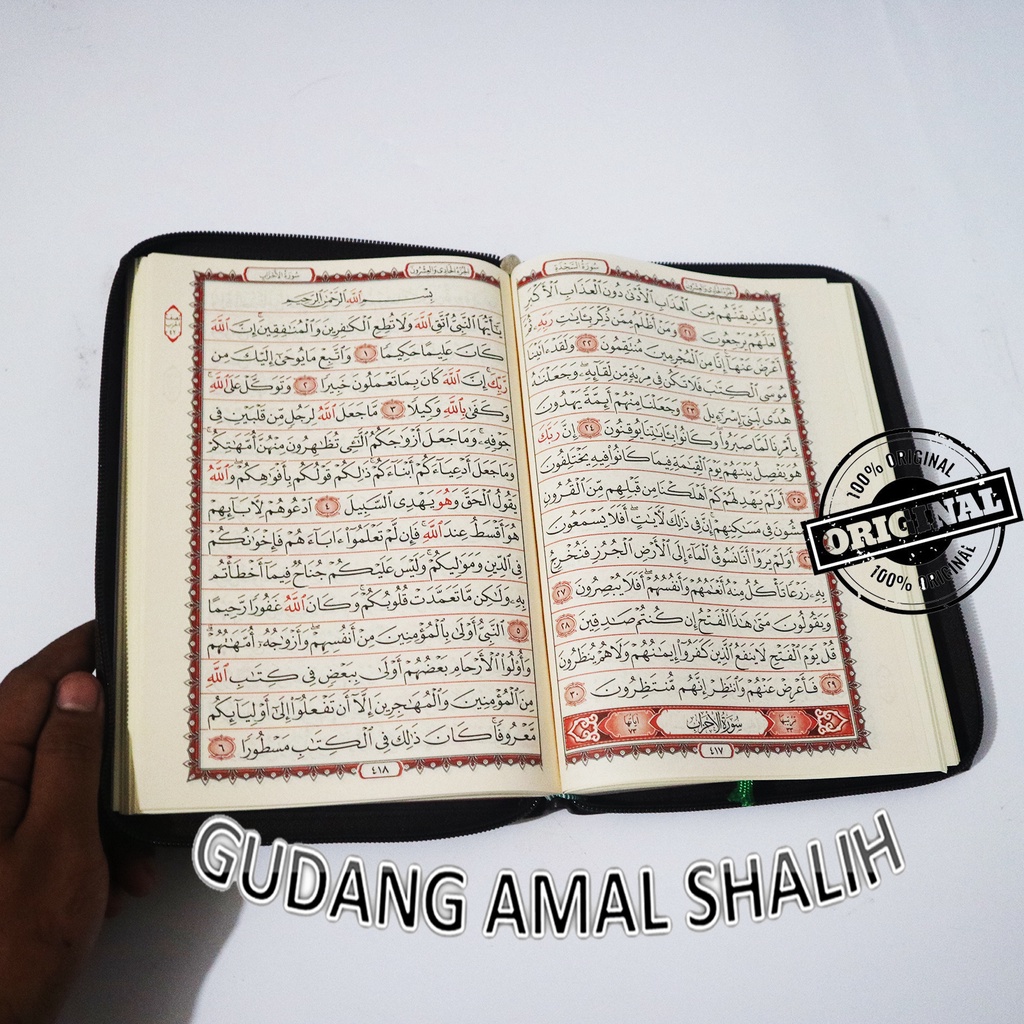 سورة السجدة
الجزء الحادي والعشرون
وَلَنُذِيقَنَّهُم مِّنَ ٱلْعَذَابِ ٱلْأَدْنَىٰ دُونَ ٱلْعَذَابِ ٱلْأَكْبَرِ
لَعَلَّهُمْ يَرْجِعُونَ ٢١ وَمَنْ أَظْلَمُ مِمَّن ذُكِّرَ بِـَٔايَٰتِ رَبِّهِۦ ثُمَّ
أَعْرَضَ عَنْهَآ إِنَّا مِنَ ٱلْمُجْرِمِينَ مُنتَقِمُونَ ٢٢ وَلَقَدْ ءَاتَيْنَا
مُوسَى ٱلْكِتَٰبَ فَلَا تَكُن فِى مِرْيَةٍ مِّن لِّقَآئِهِۦ وَجَعَلْنَٰهُ
هُدًى لِّبَنِىٓ إِسْرَٰٓءِيلَ ٢٣ وَجَعَلْنَا مِنْهُمْ أَئِمَّةً يَهْدُونَ
بِأَمْرِنَا لَمَّا صَبَرُوا۟ وَكَانُوا۟ بِـَٔايَٰتِنَا يُوقِنُونَ ٢٤ إِنَّ رَبَّكَ
هُوَ يَفْصِلُ بَيْنَهُمْ يَوْمَ ٱلْقِيَٰمَةِ فِيمَا كَانُوا۟ فِيهِ يَخْتَلِفُونَ
٢٥ أَوَلَمْ يَهْدِ لَهُمْ كَمْ أَهْلَكْنَا مِن قَبْلِهِم مِّنَ ٱلْقُرُونِ
يَمْشُونَ فِى مَسَٰكِنِهِمْ إِنَّ فِى ذَٰلِكَ لَـَٔايَٰتٍ أَفَلَا يَسْمَعُونَ
٢٦ أَوَلَمْ يَرَوْا۟ أَنَّا نَسُوقُ ٱلْمَآءَ إِلَى ٱلْأَرْضِ ٱلْجُرُزِ فَنُخْرِجُ
بِهِۦ زَرْعًا تَأْكُلُ مِنْهُ أَنْعَٰمُهُمْ وَأَنفُسُهُمْ أَفَلَا يُبْصِرُونَ ٢٧
وَيَقُولُونَ مَتَىٰ هَٰذَا ٱلْفَتْحُ إِن كُنتُمْ صَٰدِقِينَ ٢٨
قُلْ يَوْمَ ٱلْفَتْحِ لَا يَنفَعُ ٱلَّذِينَ كَفَرُوٓا۟ إِيمَٰنُهُمْ وَلَا هُمْ يُنظَرُونَ
٢٩ فَأَعْرِضْ عَنْهُمْ وَٱنتَظِرْ إِنَّهُم مُّنتَظِرُونَ ٣٠
سورة الأحزاب
٤١٧
الجزء الحادي والعشرون
سورة الأحزاب
بِسْمِ ٱللَّهِ ٱلرَّحْمَٰنِ ٱلرَّحِيمِ
يَٰٓأَيُّهَا ٱلنَّبِىُّ ٱتَّقِ ٱللَّهَ وَلَا تُطِعِ ٱلْكَٰفِرِينَ وَٱلْمُنَٰفِقِينَ إِنَّ ٱللَّهَ
كَانَ عَلِيمًا حَكِيمًا ١ وَٱتَّبِعْ مَا يُوحَىٰٓ إِلَيْكَ مِن
رَّبِّكَ إِنَّ ٱللَّهَ كَانَ بِمَا تَعْمَلُونَ خَبِيرًا ٢ وَتَوَكَّلْ عَلَى ٱللَّهِ
وَكَفَىٰ بِٱللَّهِ وَكِيلًا ٣ مَّا جَعَلَ ٱللَّهُ لِرَجُلٍ مِّن قَلْبَيْنِ فِى
جَوْفِهِۦ وَمَا جَعَلَ أَزْوَٰجَكُمُ ٱلَّٰٓـِٔى تُظَٰهِرُونَ مِنْهُنَّ أُمَّهَٰتِكُمْ
وَمَا جَعَلَ أَدْعِيَآءَكُمْ أَبْنَآءَكُمْ ذَٰلِكُمْ قَوْلُكُم بِأَفْوَٰهِكُمْ وَٱللَّهُ
يَقُولُ ٱلْحَقَّ وَهُوَ يَهْدِى ٱلسَّبِيلَ ٤ ٱدْعُوهُمْ لِـَٔابَآئِهِمْ
هُوَ أَقْسَطُ عِندَ ٱللَّهِ فَإِن لَّمْ تَعْلَمُوٓا۟ ءَابَآءَهُمْ فَإِخْوَٰنُكُمْ
فِى ٱلدِّينِ وَمَوَٰلِيكُمْ وَلَيْسَ عَلَيْكُمْ جُنَاحٌ فِيمَآ أَخْطَأْتُم
بِهِۦ وَلَٰكِن مَّا تَعَمَّدَتْ قُلُوبُكُمْ وَكَانَ ٱللَّهُ غَفُورًا رَّحِيمًا
٥ ٱلنَّبِىُّ أَوْلَىٰ بِٱلْمُؤْمِنِينَ مِنْ أَنفُسِهِمْ وَأَزْوَٰجُهُۥٓ أُمَّهَٰتُهُمْ
وَأُو۟لُوا۟ ٱلْأَرْحَامِ بَعْضُهُمْ أَوْلَىٰ بِبَعْضٍ فِى كِتَٰبِ ٱللَّهِ
مِنَ ٱلْمُؤْمِنِينَ وَٱلْمُهَٰجِرِينَ إِلَّآ أَن تَفْعَلُوٓا۟ إِلَىٰٓ أَوْلِيَآئِكُم
مَّعْرُوفًا كَانَ ذَٰلِكَ فِى ٱلْكِتَٰبِ مَسْطُورًا ٦
٤١٨
100% ORIGINAL
ORIGINAL
100% ORIGINAL
GUDANG AMAL SHALIH